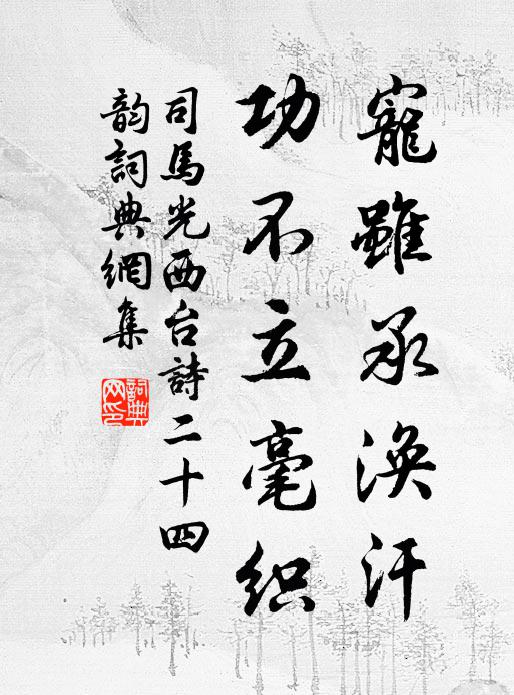 寵雖承渙汗
功不立毫织
司馬光西台詩二十四
韵詞典網集
詞典网印